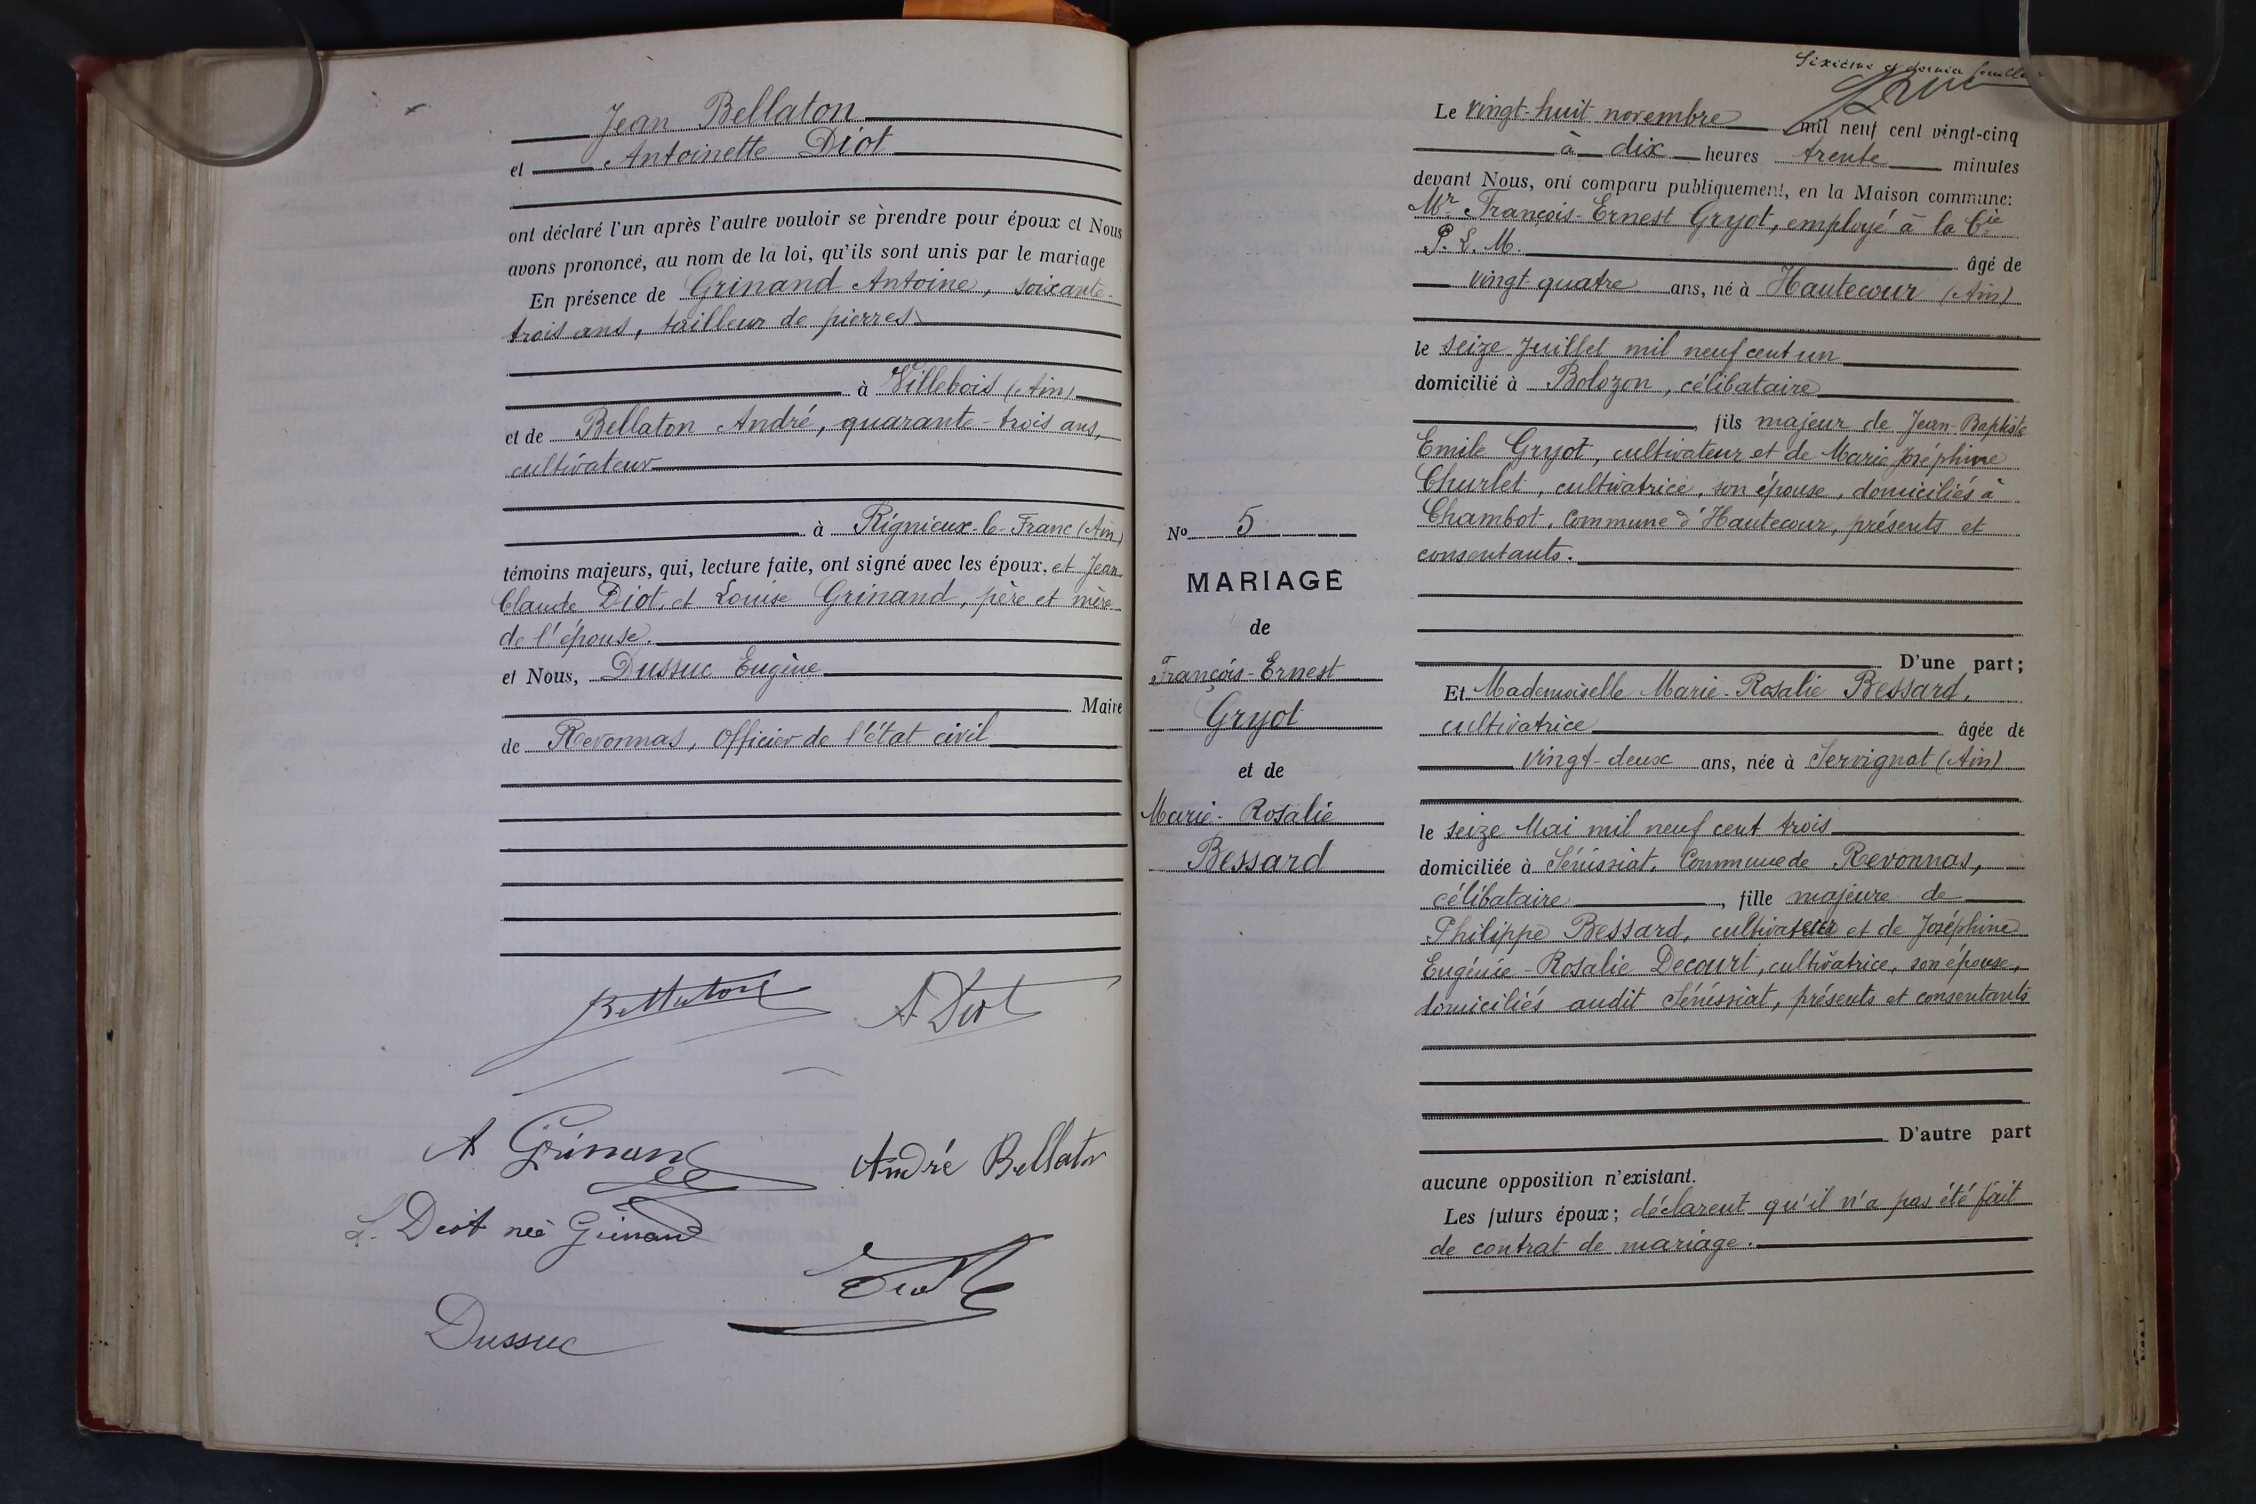 Jean Bellaton
et Antoinette Diot
ont déclaré l'un après l'autre vouloir se prendre pour époux et Nous
avons prononcé, au nom de la loi, qu'ils sont unis par le mariage
En présence de Grinand Antoine, soixante-
trois ans, tailleur de pierres
à Villebois (Ain)
et de Bellaton André, quarante-trois ans,
cultivateur
à Rignieux-le-Franc (Ain)
témoins majeurs, qui, lecture faite, ont signé avec les époux, et Jean
Claude Diot, et Louise Grinand, père et mère
de l'épouse.
et Nous, Dussuc Eugène
Maire
de Revonnas, Officier de l'état civil
Bellaton
A Diot
A Grinand
André Bellaton
L. Diot née Grinand
Diot
Dussuc
Sixième et dernier feuillet
Le vingt-huit novembre mil neuf cent vingt-cinq
à dix heures trente minutes
devant Nous, ont comparu publiquement, en la Maison commune:
Mr François-Ernest Gryot, employé à la Cie
P. L. M. âgé de
vingt-quatre ans, né à Hautecour (Ain)
le seize Juillet mil neuf cent un
domicilié à Bolozon, célibataire
, fils majeur de Jean-Baptiste
Emile Gryot, cultivateur et de Marie Joséphine
Churlet, cultivatrice, son épouse, domiciliés à
Chambot, Commune d'Hautecour, présents et
consentants.
D'une part;
Et Mademoiselle Marie-Rosalie Bessard,
cultivatrice âgée de
vingt-deux ans, née à Servignat (Ain)
le seize Mai mil neuf cent trois
domiciliée à Sénissiat, Commune de Revonnas,
célibataire, fille majeure de
Philippe Bessard, cultivateur et de Joséphine
Eugénie-Rosalie Decourt, cultivatrice, son épouse,
domiciliés audit Sénissiat, présents et consentants
D'autre part
aucune opposition n'existant.
Les futurs époux; déclarent qu'il n'a pas été fait
de contrat de mariage.
No 5
MARIAGE
de
François-Ernest
Gryot
et de
Marie-Rosalie
Bessard